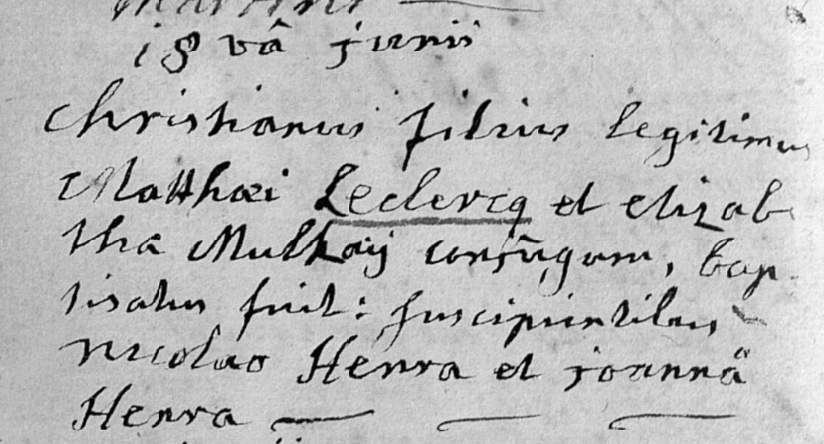 18 vâ junii
Christianus filius legitimus
Matthæi Leclercq et elizab
tha Mulkaÿ conjugum, bap
tisatus fuit: suscipientibus
Nicolao Henra et joannâ
Henra